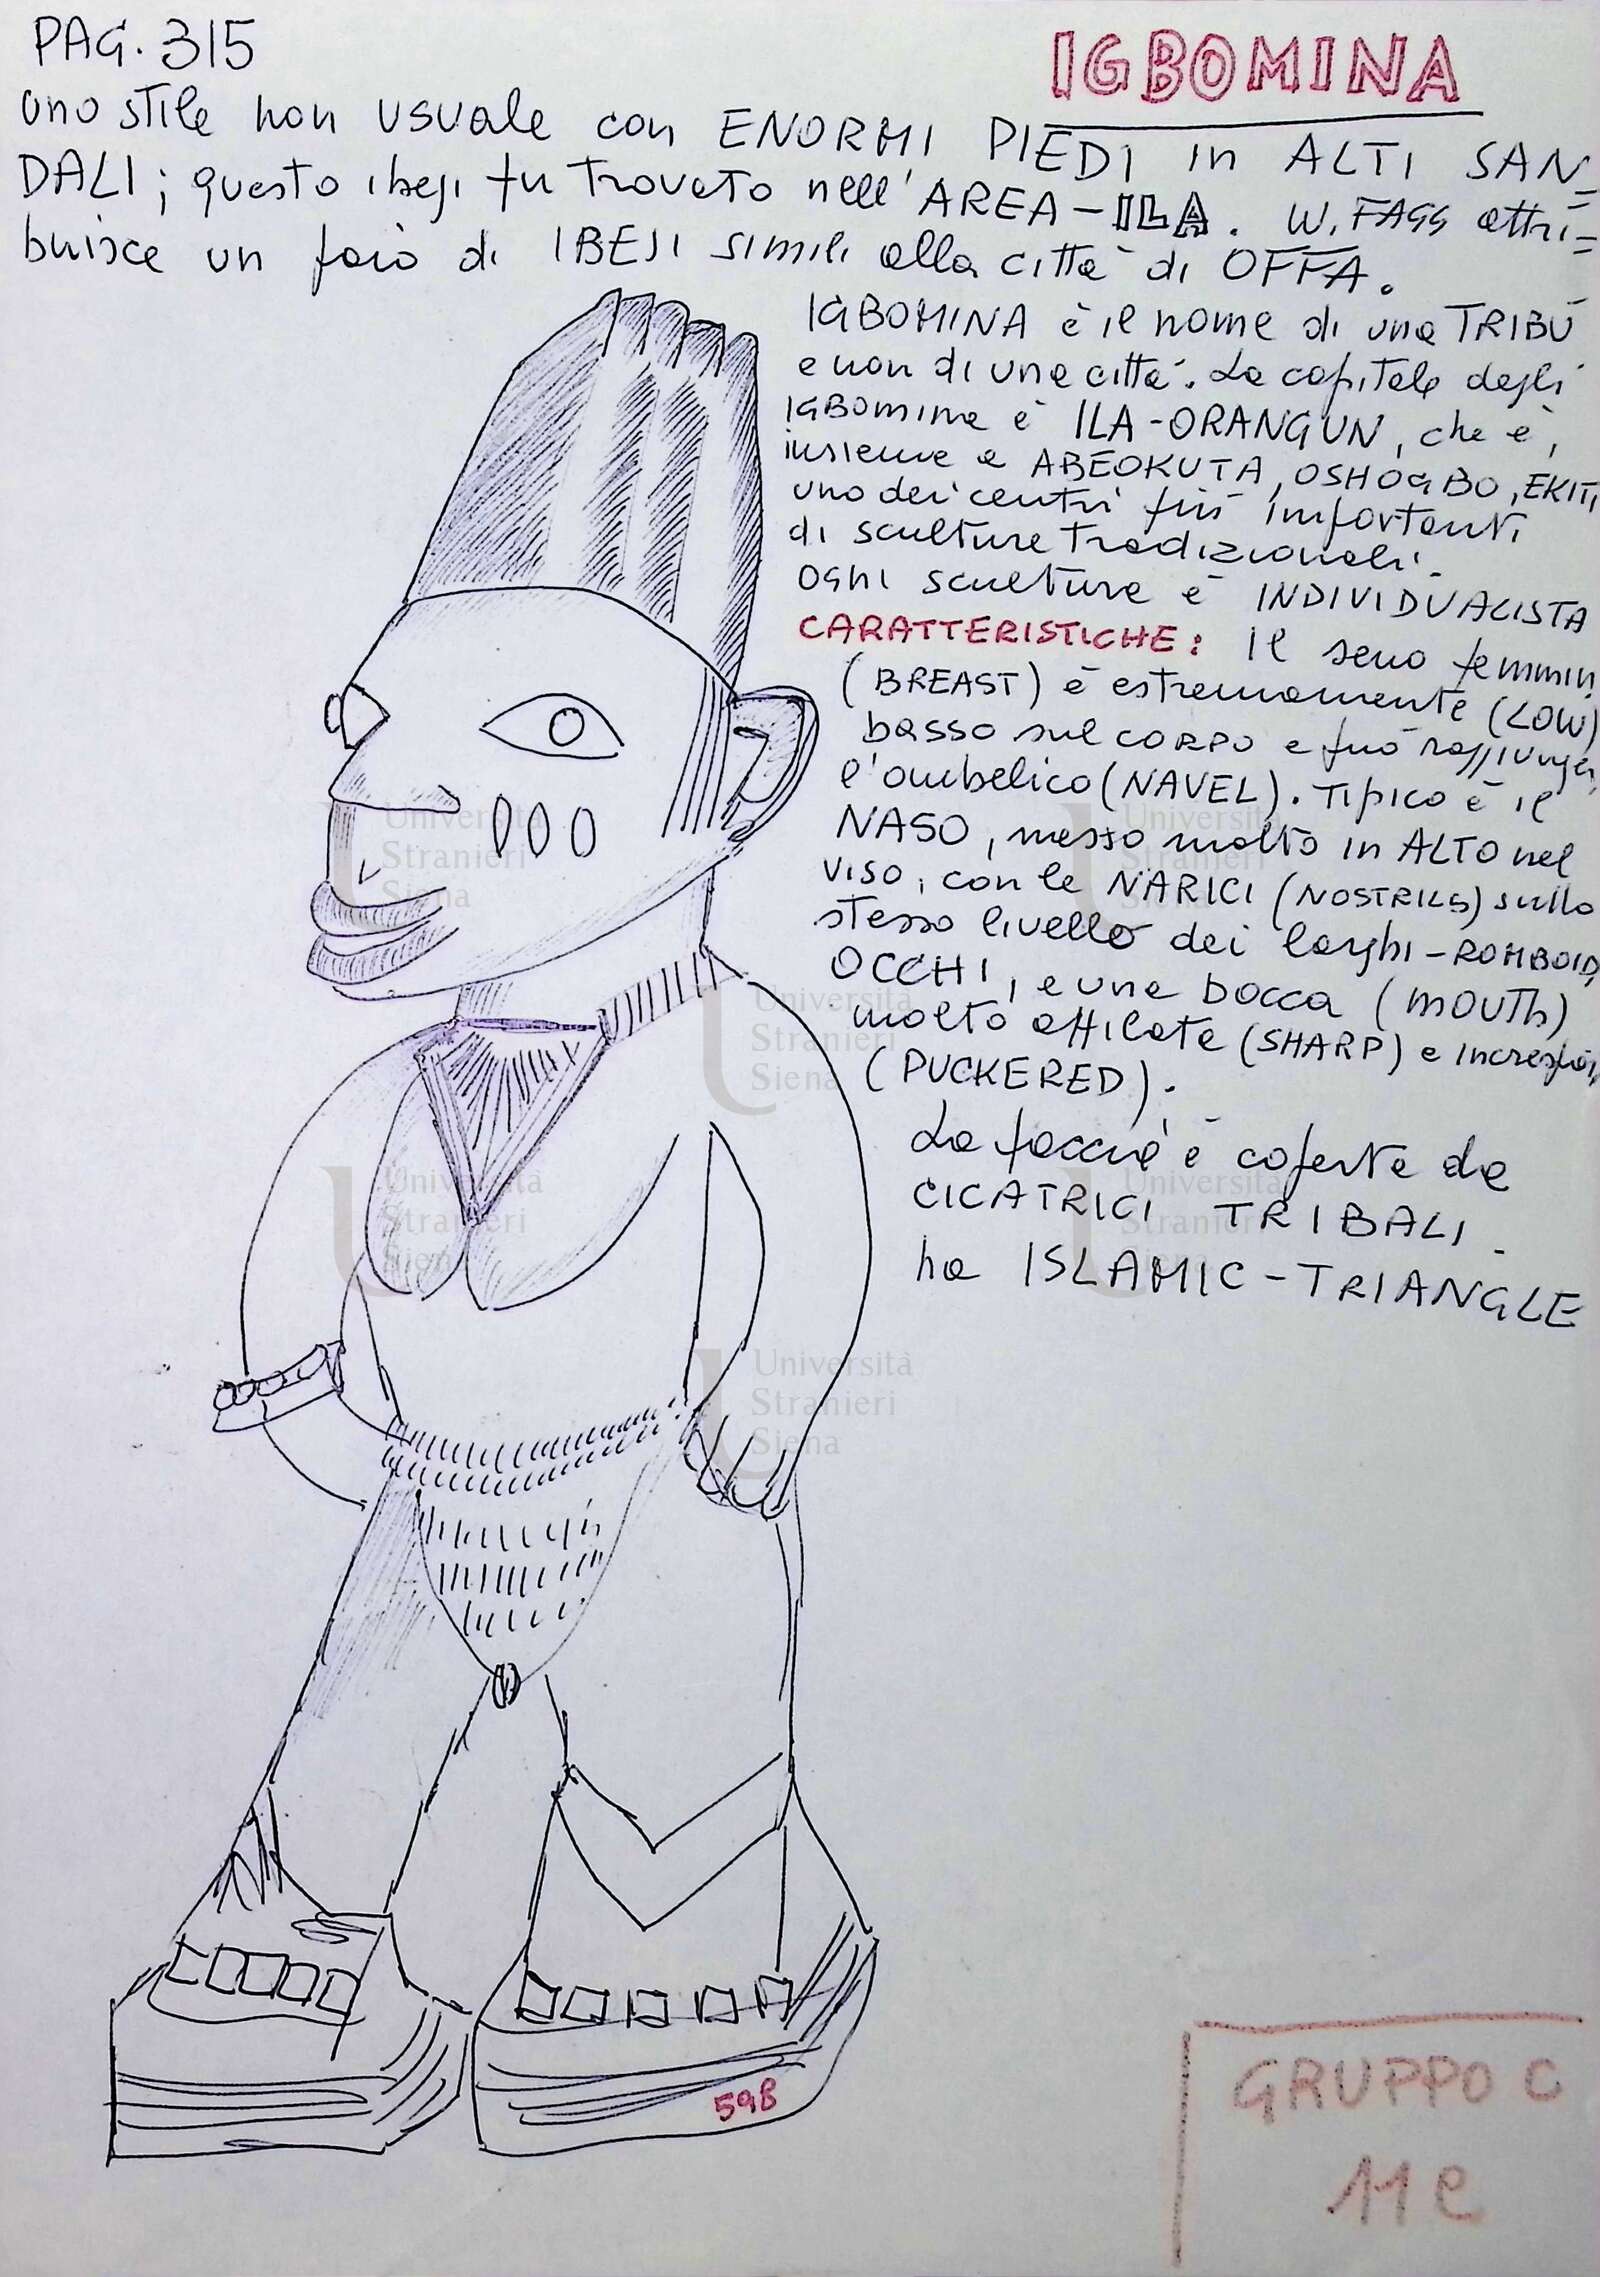 PAG. 315
IGBOMINA
uno stile non usuale con ENORMI PIEDI in ALTI SAN=
DALI; questo ibeji fu trovato nell'AREA-ILA. W. FAGG attri=
buisce un paio di IBEJI simili alla città di OFFA.
IGBOMINA è il nome di una TRIBÙ
e non di una città. La capitale degli
IGBOMINA è ILA-ORANGUN, che è,
insieme a ABEOKUTA, OSHOGBO, EKITI,
uno dei centri più importanti
di sculture tradizionali.
ogni scultura è INDIVIDUALISTA
CARATTERISTICHE: Il seno femmin
(BREAST) è estremamente (LOW)
basso sul CORPO e può raggiunger
l'ombelico (NAVEL). Tipico è il
NASO, messo molto in ALTO nel
viso, con le NARICI (NOSTRILS) sullo
stesso livello dei larghi-ROMBOID,
OCCHI, e una bocca (MOUTh)
molto affilata (SHARP) e increspa
(PUCKERED).
La faccia è coperta da
CICATRICI TRIBALI.
ha ISLAMIC-TRIANGLE
598
GRUPPO C
11 e
Università
Stranieri
Siena
Università
Stranieri
Siena
Università
Stranieri
Siena
Università
Stranieri
Siena
Università
Stranieri
Siena
Università
Stranieri
Siena